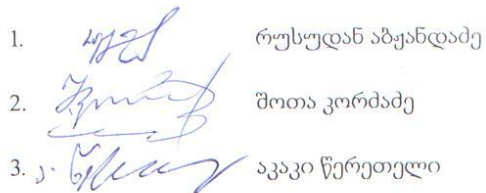 1. რუსუდან აბჟანდაძე
2. შოთა კორძაძე
3. აკაკი წერეთელი